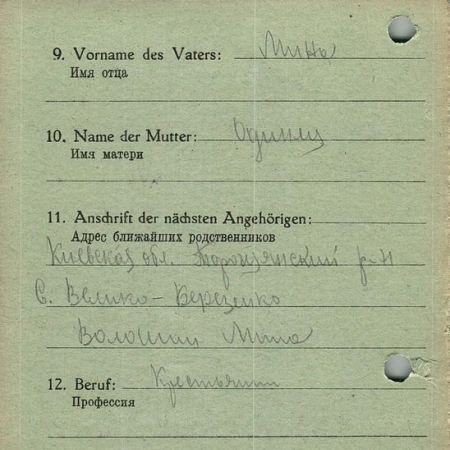 9. Vorname des Vaters: Мина
Имя отца
10. Name der Mutter:
Имя матери
11. Anschrift der nächsten Angehörigen:
Адрес ближайших родственников
Киевская обл. р-н
С. Велико-Березенко
Волошин Мина
12. Beruf: Крестьянин
Профессия